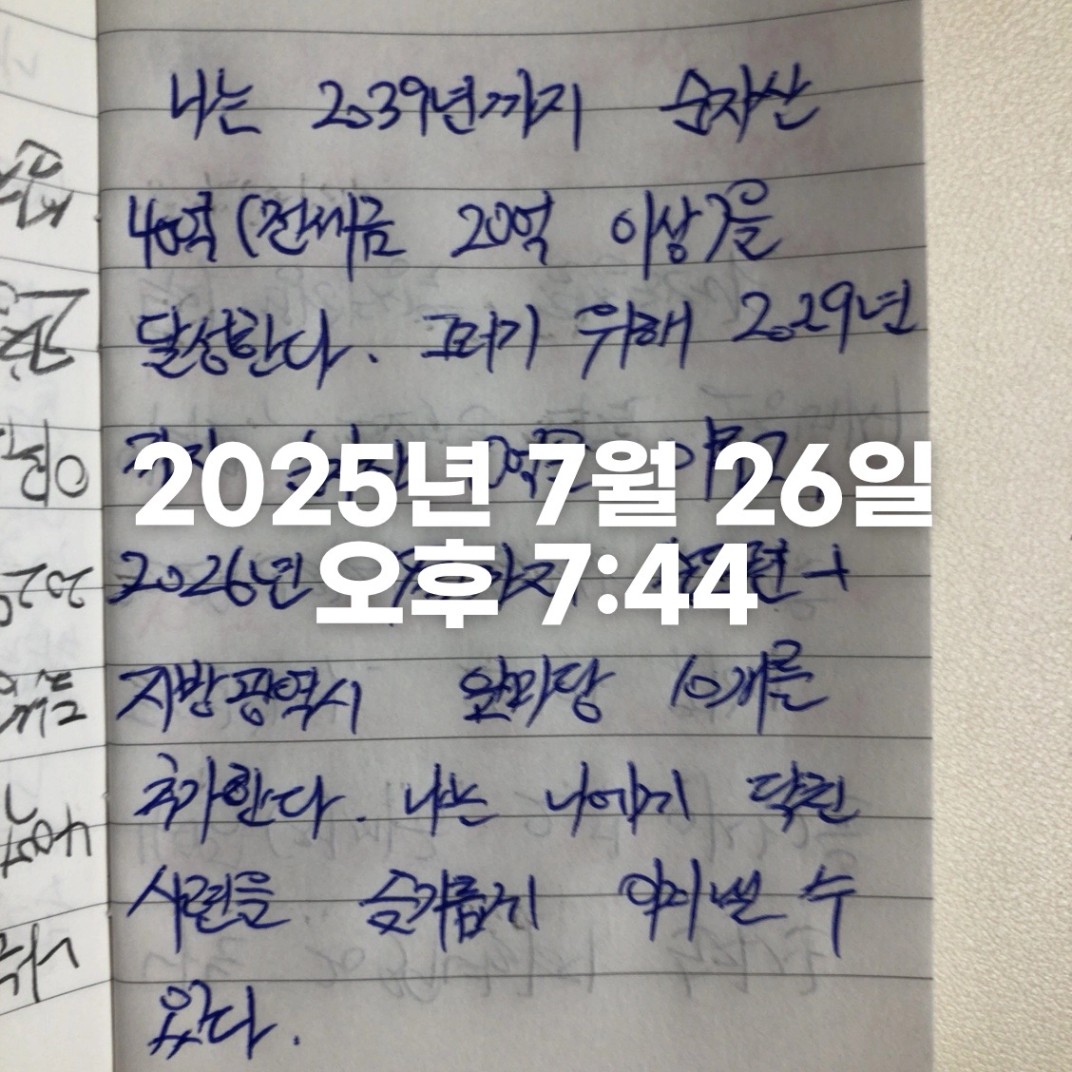 나는 2039년까지 순자산
40억(전세금 20억 이상)을
달성한다. 그러기 위해 2029년
2025년 7월 26일
오후 7:44
2026년
지방광역시 앞마당 10개를
추가한다. 나는 나에게 닥친
시련을 슬기롭게 이겨낼 수
있다.